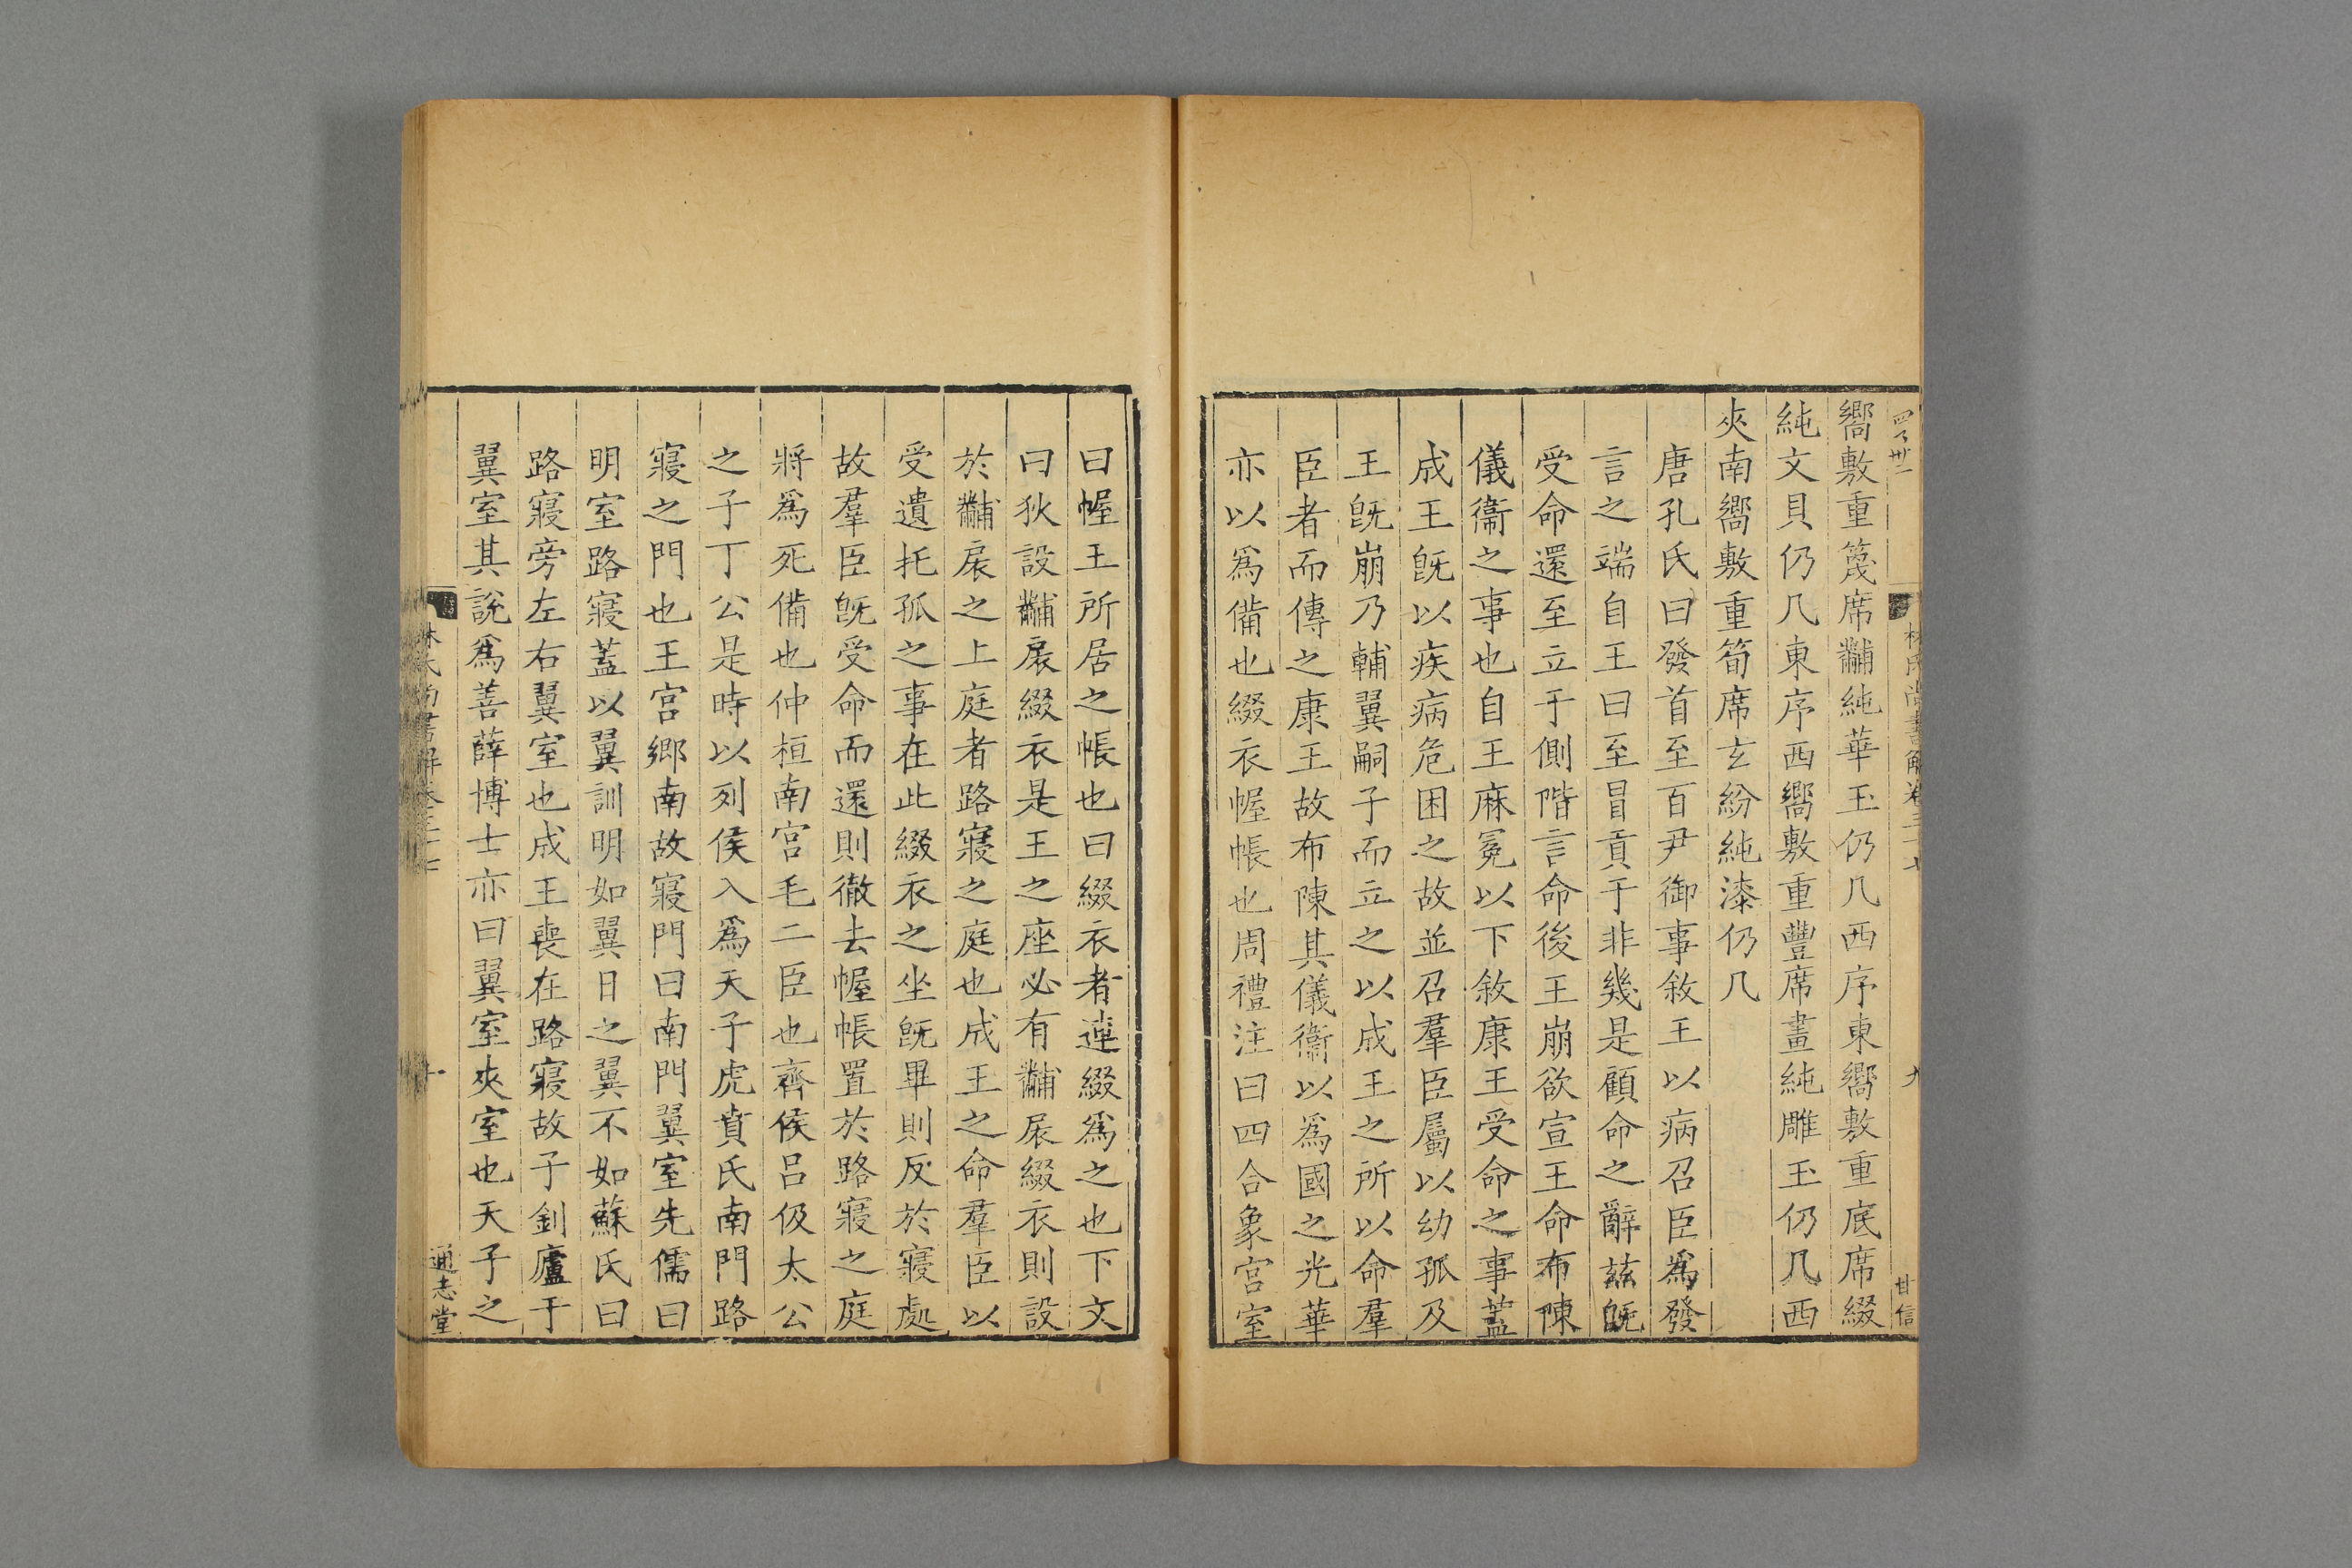 嚮敷重篾席黼純華玉仍几西序東嚮敷重底席綴
純文貝仍几東序西嚮敷重豐席畫純雕玉仍几西
夾南嚮敷重筍席玄紛純漆仍几
唐孔氏曰發首至百尹御事敘王以病召臣爲發
言之端自王曰至冒貢于非幾是顧命之辭茲旣
受命還至立于側階言命後王崩欲宣王命布陳
儀衞之事也自王麻冕以下敘康王受命之事蓋
成王旣以疾病危困之故並召羣臣屬以幼孤及
王旣崩乃輔翼嗣子而立之以成王之所以命羣
臣者而傳之康王故布陳其儀衞以爲國之光華
亦以爲備也綴衣幄帳也周禮注曰四合象宮室
曰幄王所居之帳也曰綴衣者連綴爲之也下文
曰狄設黼扆綴衣是王之座必有黼扆綴衣則設
於黼扆之上庭者路寢之庭也成王之命羣臣以
受遺托孤之事在此綴衣之坐旣畢則反於寢處
故羣臣旣受命而還則徹去幄帳置於路寢之庭
將爲死備也仲桓南宮毛二臣也齊侯呂伋太公
之子丁公是時以列侯入爲天子虎賁氏南門路
寢之門也王宮鄉南故寢門曰南門翼室先儒曰
明室路寢蓋以翼訓明如翼日之翼不如蘇氏曰
路寢旁左右翼室也成王喪在路寢故子釗廬于
翼室其說爲善薛博士亦曰翼室夾室也天子之
林氏尚書解卷三十七
九
甘信
十
通志堂